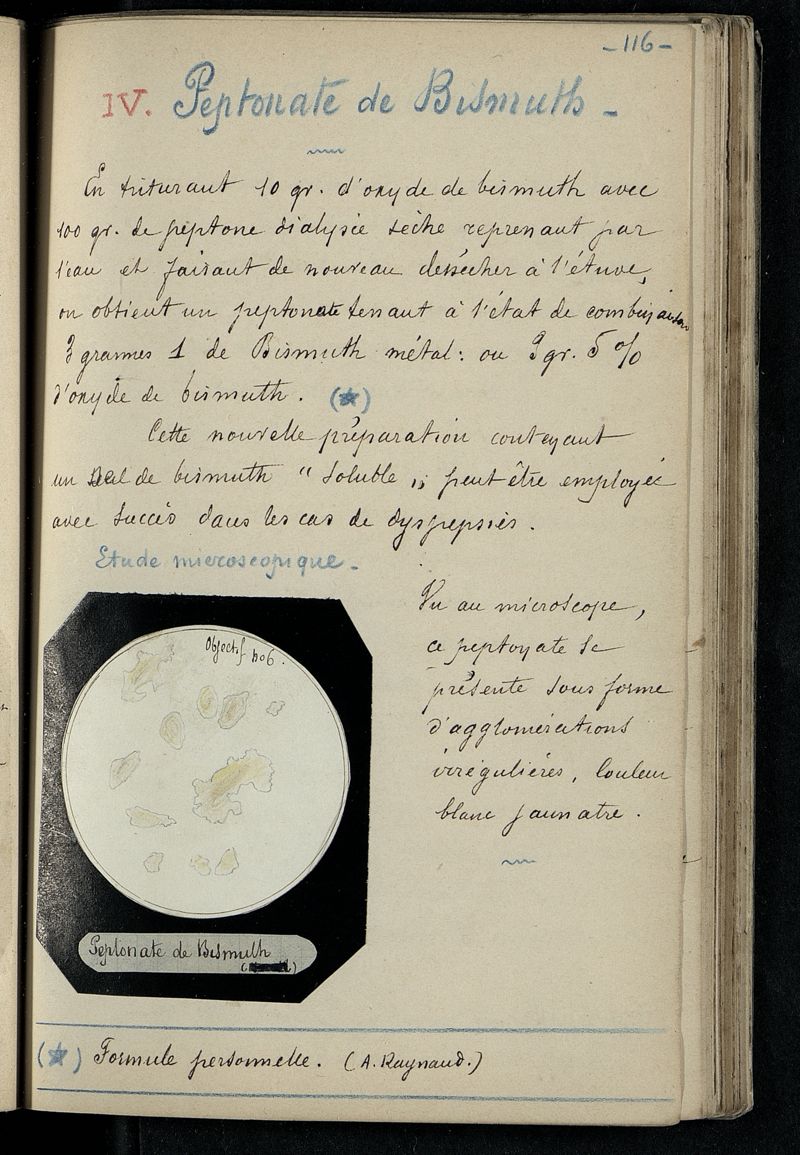 -116-
IV. Peptonate de Bismuth -
En triturant 10 gr. d'oxyde de bismuth avec
100 gr. de peptone dialysée sèche reprenant par
l'eau et faisant de nouveau dessécher à l'étuve,
on obtient un peptonate tenant à l'état de combinaison
3 grammes 1 de Bismuth métal: ou 3 gr. 5 %
d'oxyde de bismuth. (★)
Cette nouvelle préparation contenant
un sel de bismuth " soluble ,, peut être employée
avec succès dans les cas de dyspepsies.
Etude microscopique -
Vu au microscope,
ce peptonate se
présente sous forme
d'agglomérations
irrégulières, couleur
blanc jaunatre.
Objectif no 6.
Peptonate de Bismuth
(★) Formule personnelle. (A. Raynaud.)